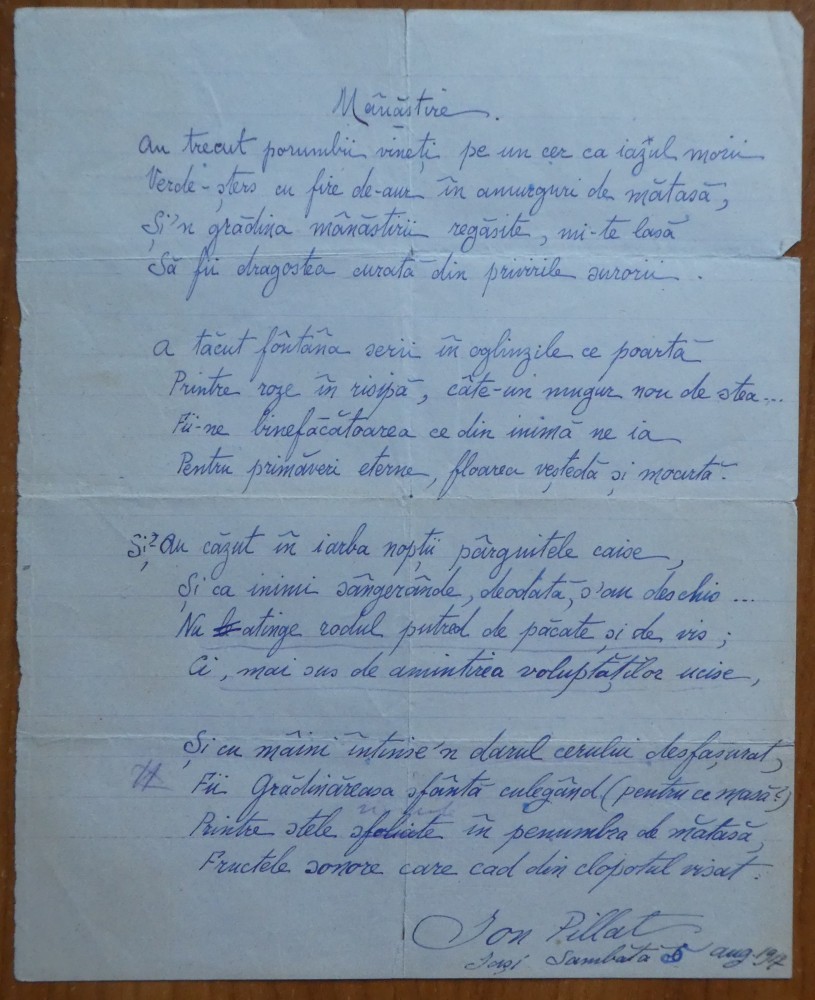 Mânăstire.
Au trecut porumbii vineți pe un cer ca iazul morii
Verde-șters cu fire de-aur în amurguri de mătasă,
Și'n grădina mânăstirii regăsite, mi-te lasă
Să fii dragostea curată din privirile surorii.
A tăcut fântâna serii în oglinzile ce poartă
Printre roze în risipă, câte-un mugur nou de stea...
Fii-ne binefăcătoarea ce din inimă ne ia
Pentru primăveri eterne, floarea veștedă și moartă.
Și? Au căzut în iarba nopții pârguitele caise,
Și ca inimi sângerânde, deodată, s'au deschis...
Nu atinge rodul putred de păcate și de vis;
Ci, mai sus de amintirea voluptăților ucise,
Și cu mâini întinse'n darul cerului desfășurat,
Fii Grădinăreasa sfântă culegând (pentru ce masă?)
Printre stele sfoliate în penumbra de mătasă,
Fructele sonore care cad din clopotul visat.
Ion Pillat
Iași Sambătă 5 aug. 1917